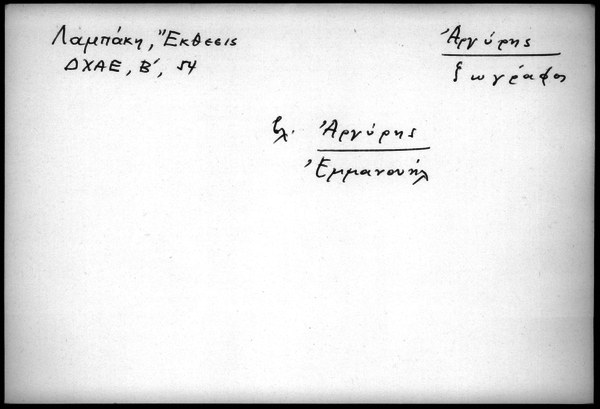 Λαμπάκη, Ἔκθεσις
ΔΧΑΕ, Β΄, 54
Ἀργύρης
ζωγράφος
βλ. Ἀργύρης
Ἐμμανουήλ